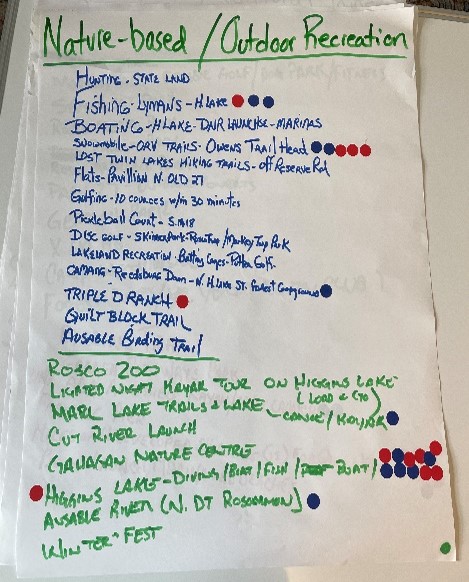 Nature-based / Outdoor Recreation
Hunting - State Land
Fishing - Lymans - H. Lake
Boating - H Lake - DNR Launchse - Marinas
Snowmobile - ORV Trails - Owens Trail Head
Lost Twin Lakes Hiking Trails - off Reserve Rd
Flats - Pavillian N. Old 27
Golfing - 10 courses w/in 30 minutes
Pickleball Court - S. M18
Disc Golf - Park / Markey Twp Park
Lakeland Recreation - Batting Cages - Putter Golf
Camping - Reedsburg Dam - N. H Lake St. Forest Campground
Triple D Ranch
Quilt Block Trail
Ausable Birding Trail
Rosco 200
Lighted Night Kayak Tour on Higgins Lake
Marl Lake Trails & Lake - Canoe / Kayak
( Load & Go
Cut River Launch
Gahagan Nature Centre
Higgins Lake - Diving / Boat / Fish / Boat /
Ausable River (N. DT Roscommon)
Winter Fest